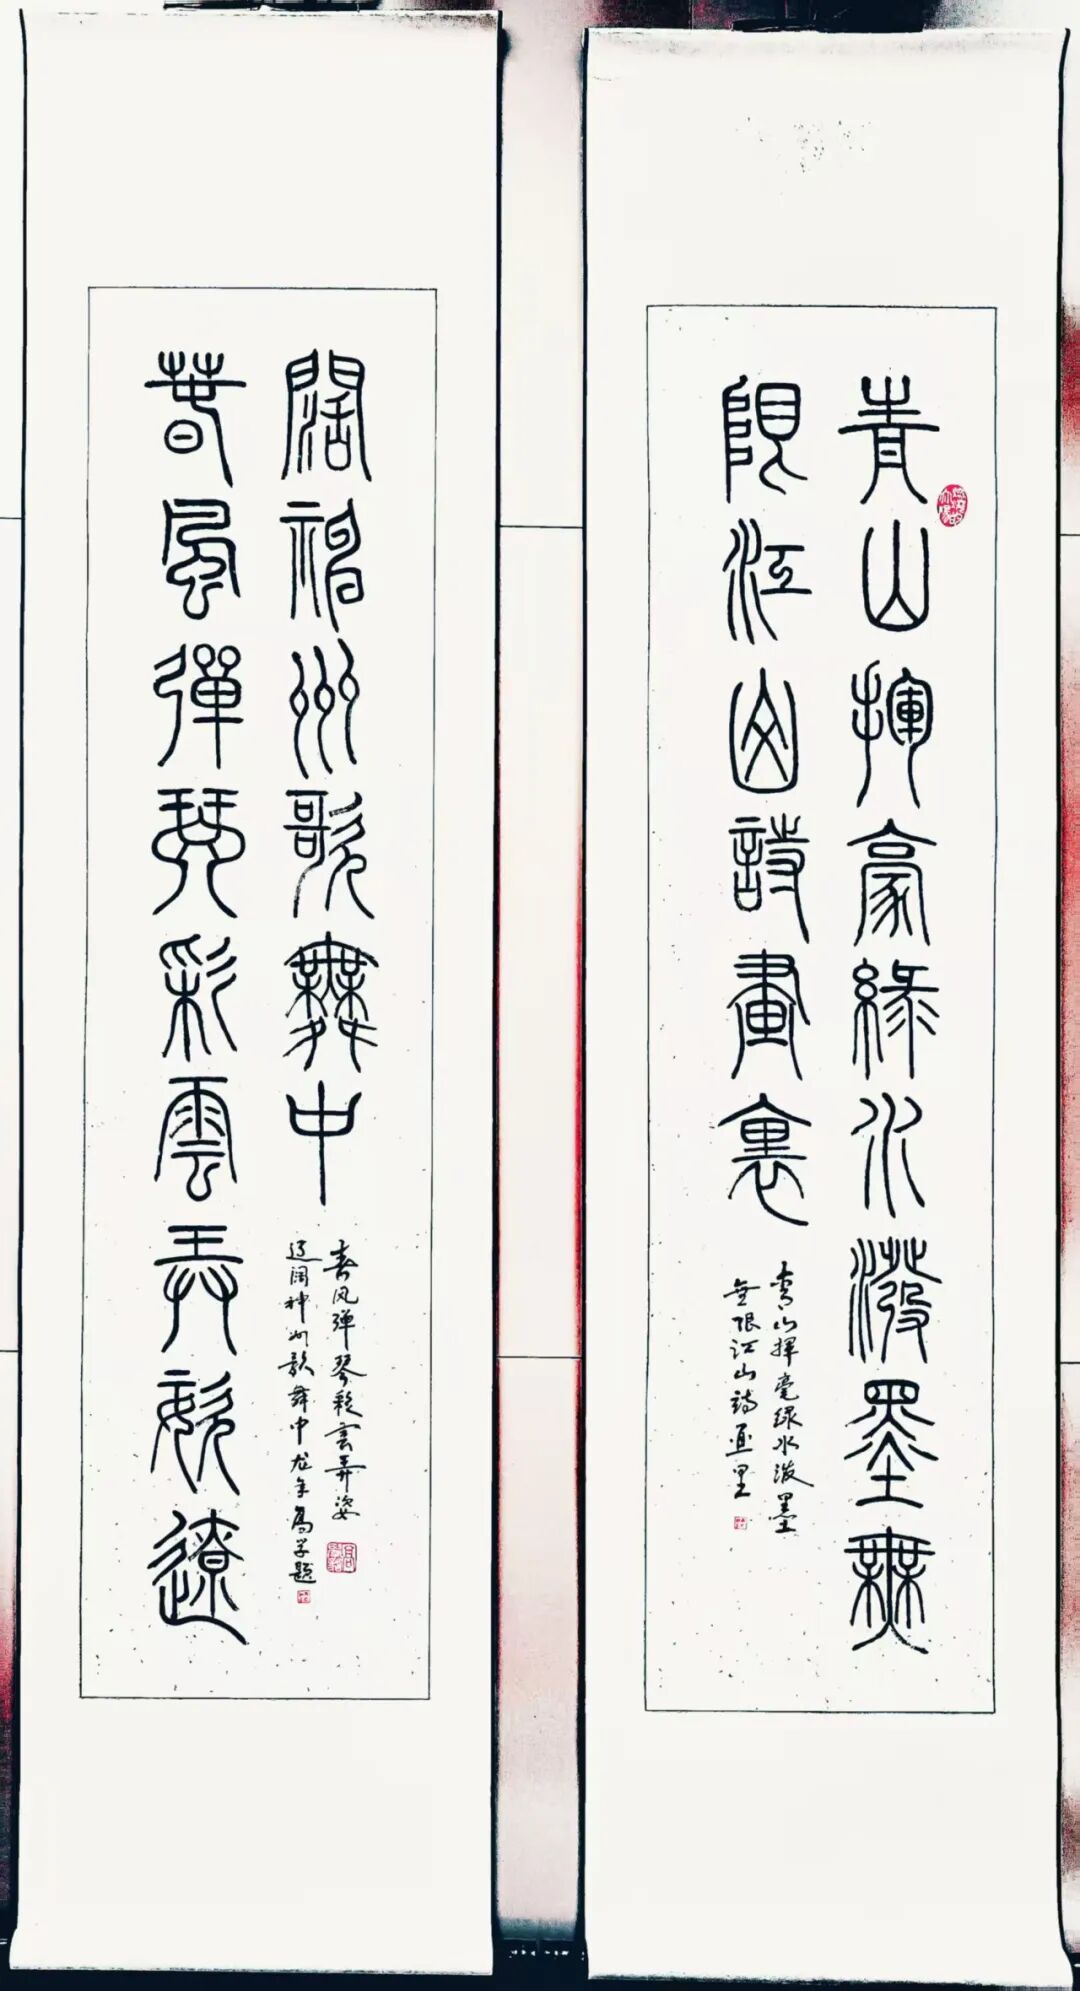 青山揮豪綠水潑墨無
限江山詩畫裏
青山揮毫绿水泼墨
無限江山詩画里
春風彈琴彩雲弄姿遼
闊神州歌舞中
春风弹琴彩雲弄姿
辽阔神州歌舞中龙年学题